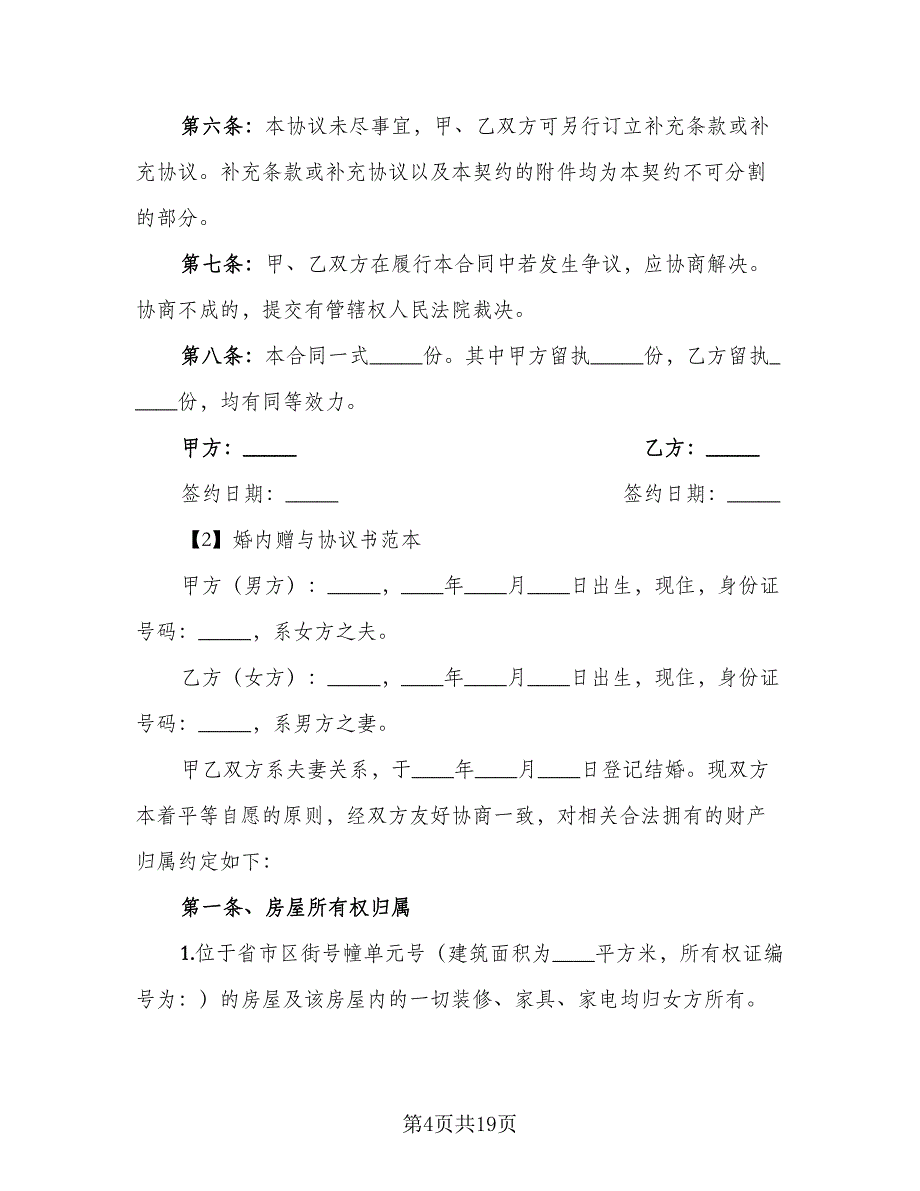 第六条：本协议未尽事宜，甲、乙双方可另行订立补充条款或补
充协议。补充条款或补充协议以及本契约的附件均为本契约不可分割
的部分。
第七条：甲、乙双方在履行本合同中若发生争议，应协商解决。
协商不成的，提交有管辖权人民法院裁决。
第八条：本合同一式_____份。其中甲方留执_____份，乙方留执_
____份，均有同等效力。
甲方：_____ 乙方：_____
签约日期：_____ 签约日期：_____
【2】婚内赠与协议书范本
甲方（男方）：_____，____年____月____日出生，现住，身份证
号码：_____，系女方之夫。
乙方（女方）：_____，____年____月____日出生，现住，身份证
号码：_____，系男方之妻。
甲乙双方系夫妻关系，于____年____月____日登记结婚。现双方
本着平等自愿的原则，经双方友好协商一致，对相关合法拥有的财产
归属约定如下：
第一条、房屋所有权归属
1.位于省市区街号幢单元号（建筑面积为____平方米，所有权证编
号为：）的房屋及该房屋内的一切装修、家具、家电均归女方所有。
第4页共19页